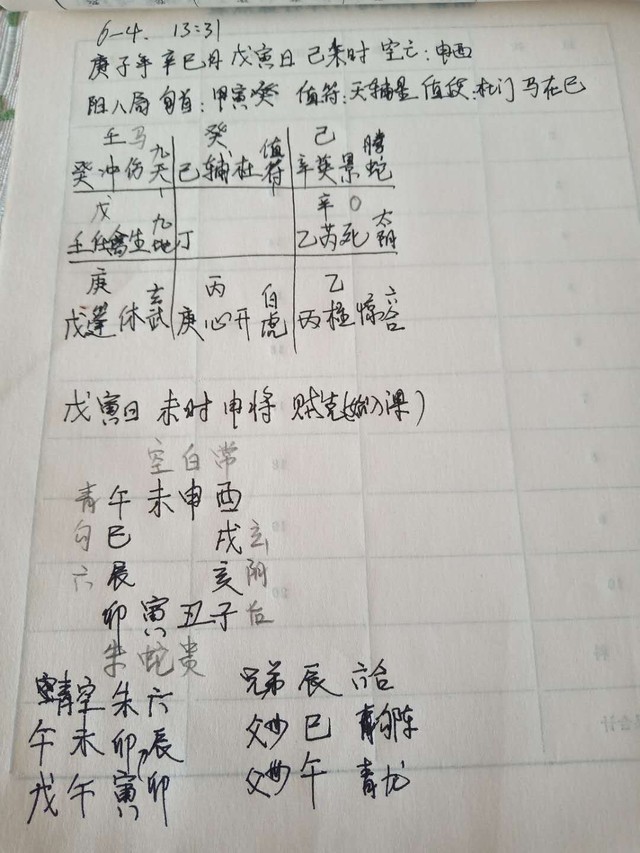 6-4. 13:31
庚子年 辛巳月 戊寅日 己未时 空亡:申酉
阳八局 旬首:甲寅癸 值符:天辅星 值使:杜门 马在巳
壬马 癸 己
癸冲伤九天 己辅杜值符 辛英景腾蛇
戊 辛〇
壬任禽生九地 丁 乙芮死太阴
庚 丙 乙
戊蓬休玄武 庚心开白虎 丙柱惊六合
戊寅日 未时 申将 贼克(始入课)
空白常
青午未申酉
勾巳 戌玄
六辰 亥阴
卯寅丑子后
朱蛇贵
青空朱六 兄弟 辰 六合
午未卯辰 父母 巳 勾陈
戊午寅卯 父母 午 青龙